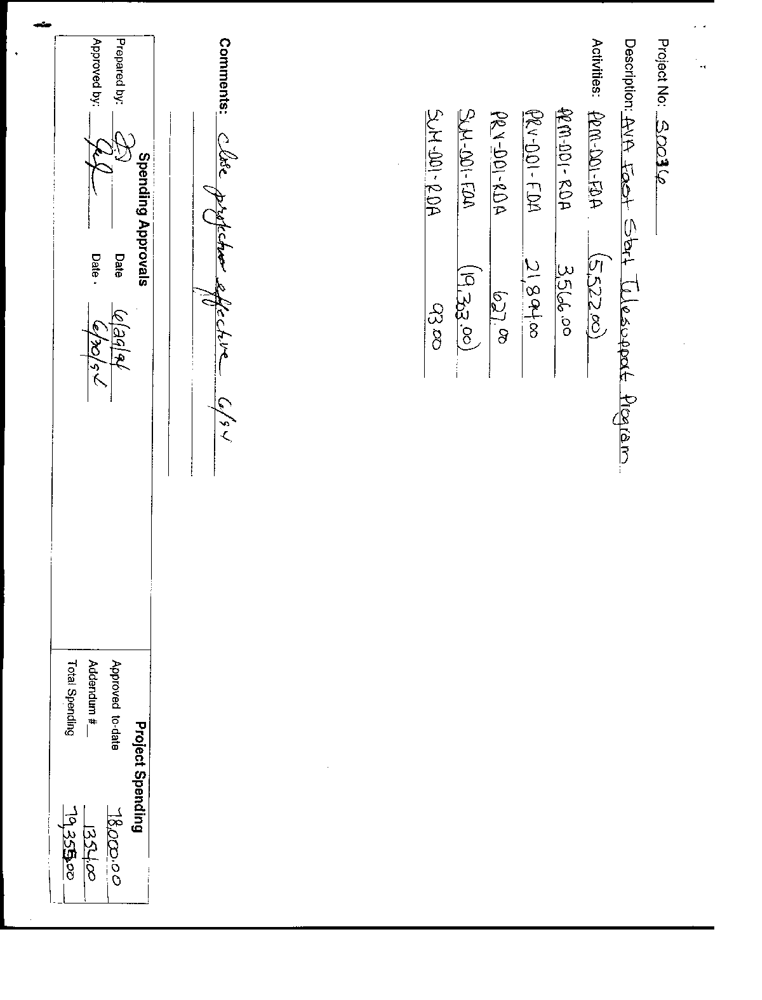 Project No: S0036
Description: AVA Fast Start Telesupport Program
Activities: PRM-DD1-FDA (5,522.00)
PRM-DD1-RDA 3,566.00
PRV-DD1-FDA 21,894.00
PRV-DD1-RDA 627.00
SUM-DD1-FDA (19,303.00)
SUM-DD1-RDA 93.00
Comments: Close effective 6/94
Spending Approvals
Prepared by: Date 6/29/94
Approved by: Date 6/30/94
Project Spending
Approved to-date 78,000.00
Addendum #__ 1354.00
Total Spending 79,355.00